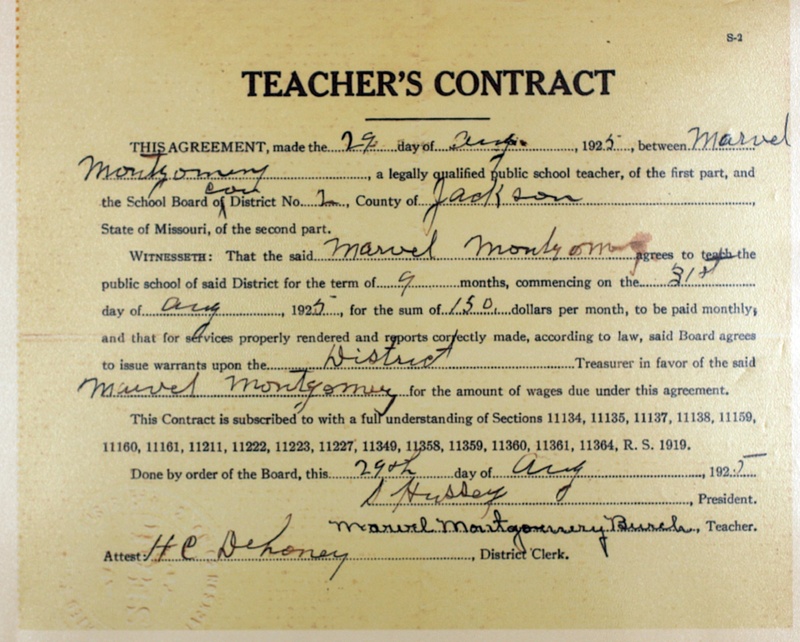 S-2
TEACHER'S CONTRACT
THIS AGREEMENT, made the 29 day of Aug., 1925, between Marvel
Montgomery, a legally qualified public school teacher, of the first part, and
the School Board of Con District No. 2, County of Jackson,
State of Missouri, of the second part.
WITNESSETH: That the said Marvel Montgomery agrees to teach the
public school of said District for the term of 9 months, commencing on the 31st
day of Aug, 1925, for the sum of 150 dollars per month, to be paid monthly;
and that for services properly rendered and reports correctly made, according to law, said Board agrees
to issue warrants upon the District Treasurer in favor of the said
Marvel Montgomery for the amount of wages due under this agreement.
This Contract is subscribed to with a full understanding of Sections 11134, 11135, 11137, 11138, 11159,
11160, 11161, 11211, 11222, 11223, 11227, 11349, 11358, 11359, 11360, 11361, 11364, R. S. 1919.
Done by order of the Board, this 29th day of Aug, 1925
S Hussey, President.
Marvel Montgomery Burch, Teacher.
Attest: H C Dehoney, District Clerk.